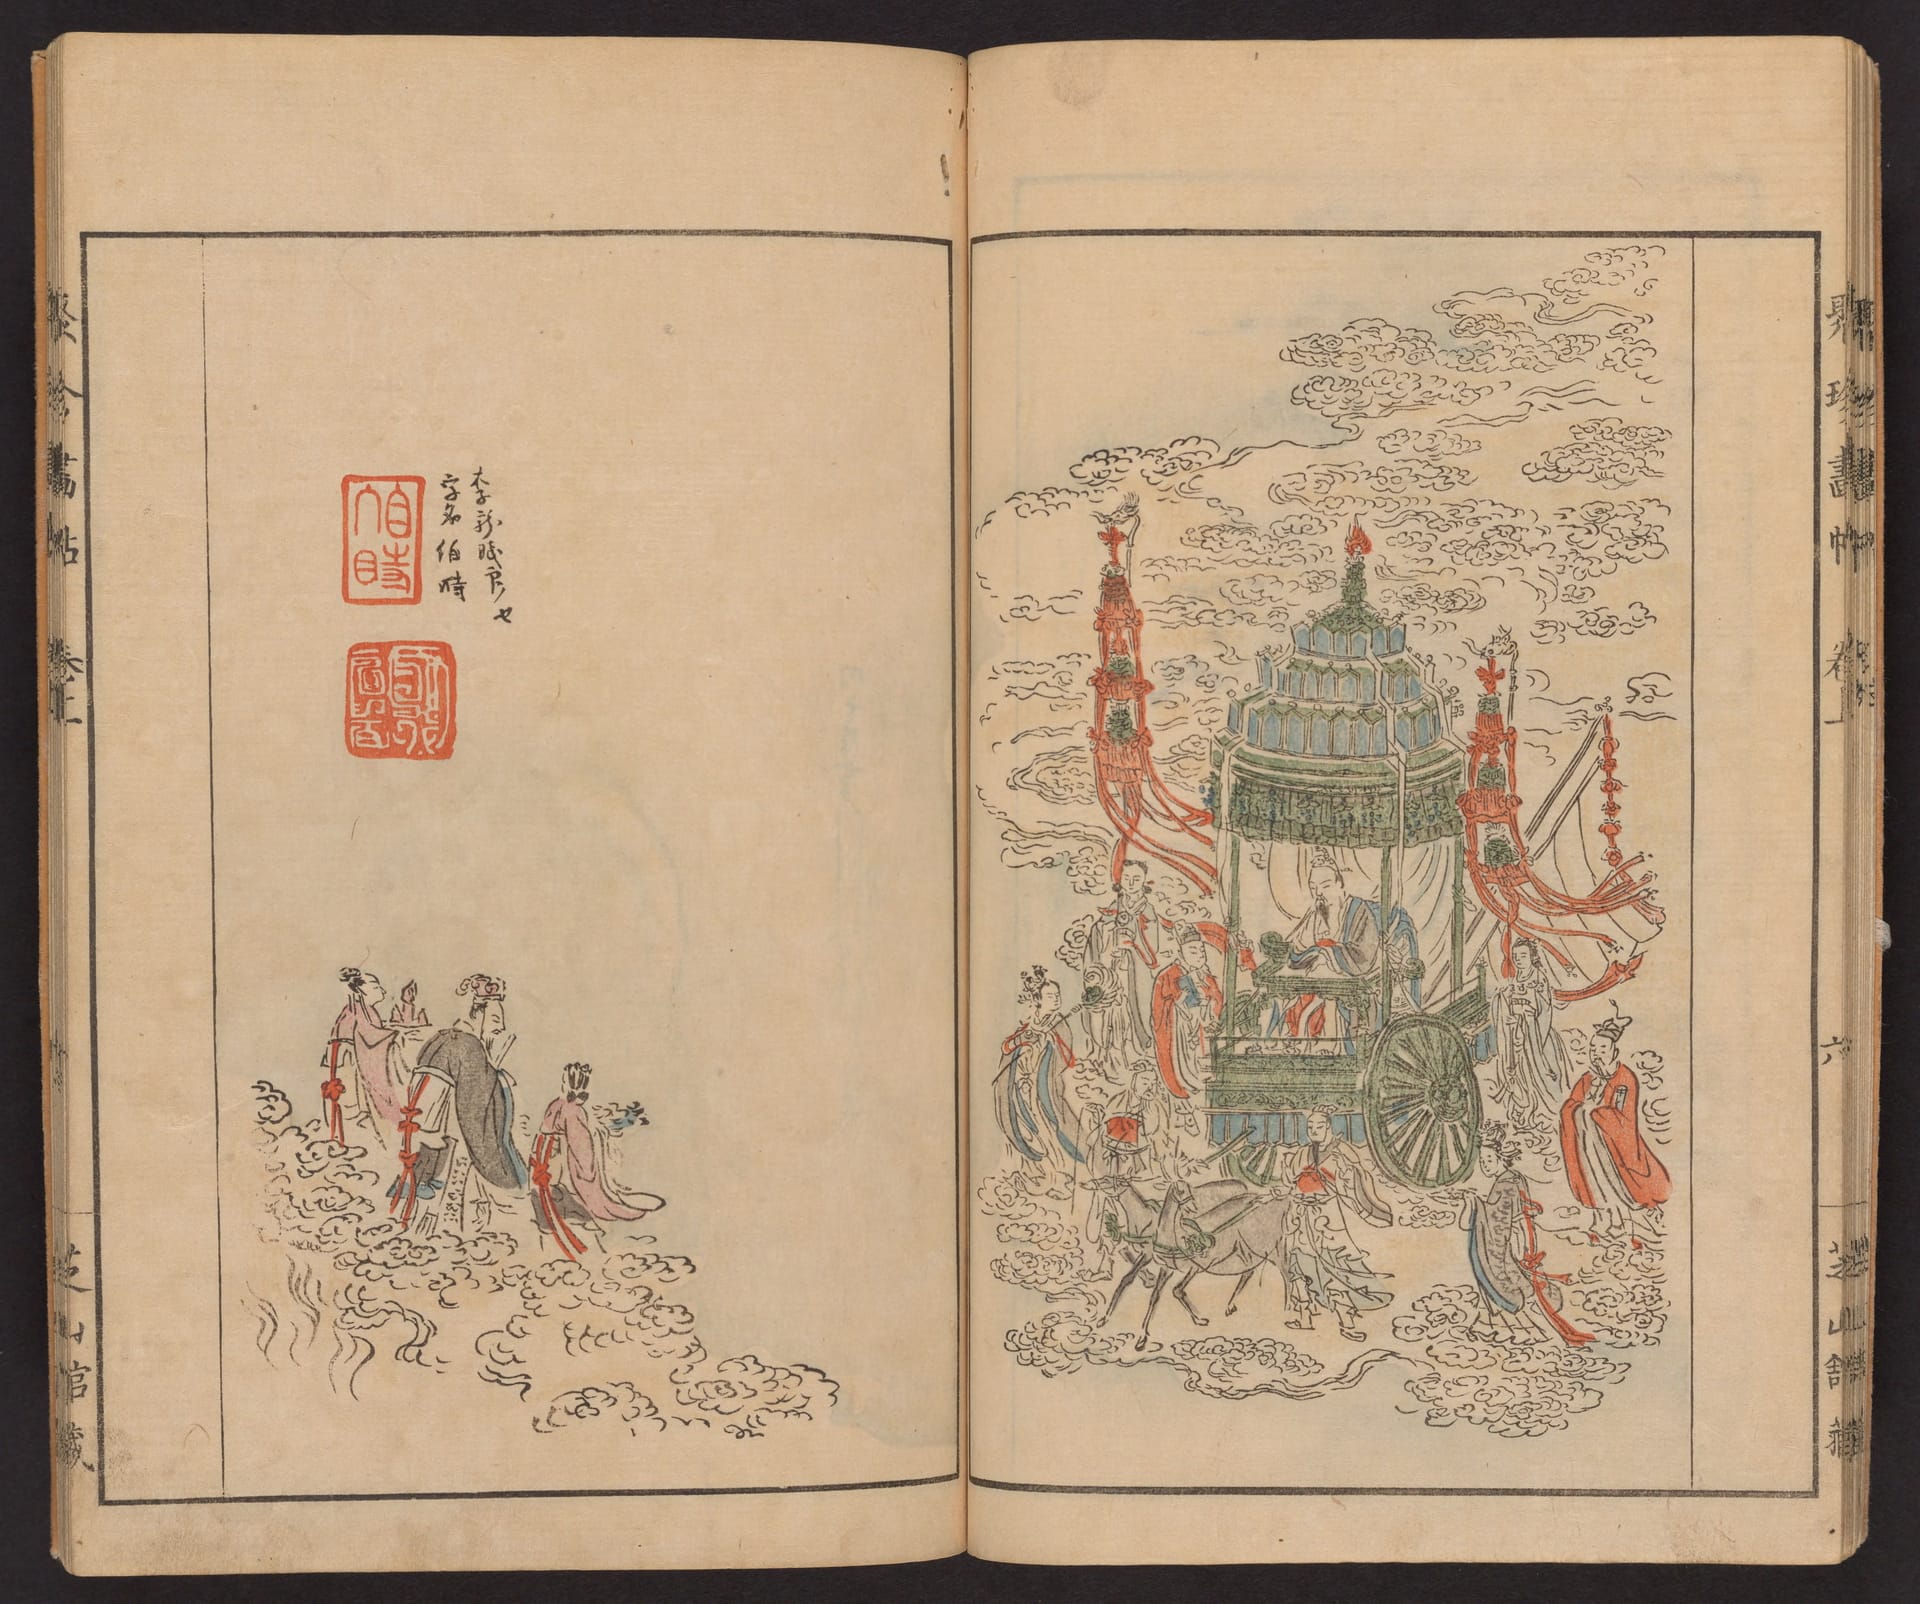 聚珍畫帖 卷上 六 芝山館藏
李龍眠
字名伯時
伯時
聚珍畫帖 卷上 芝山館藏